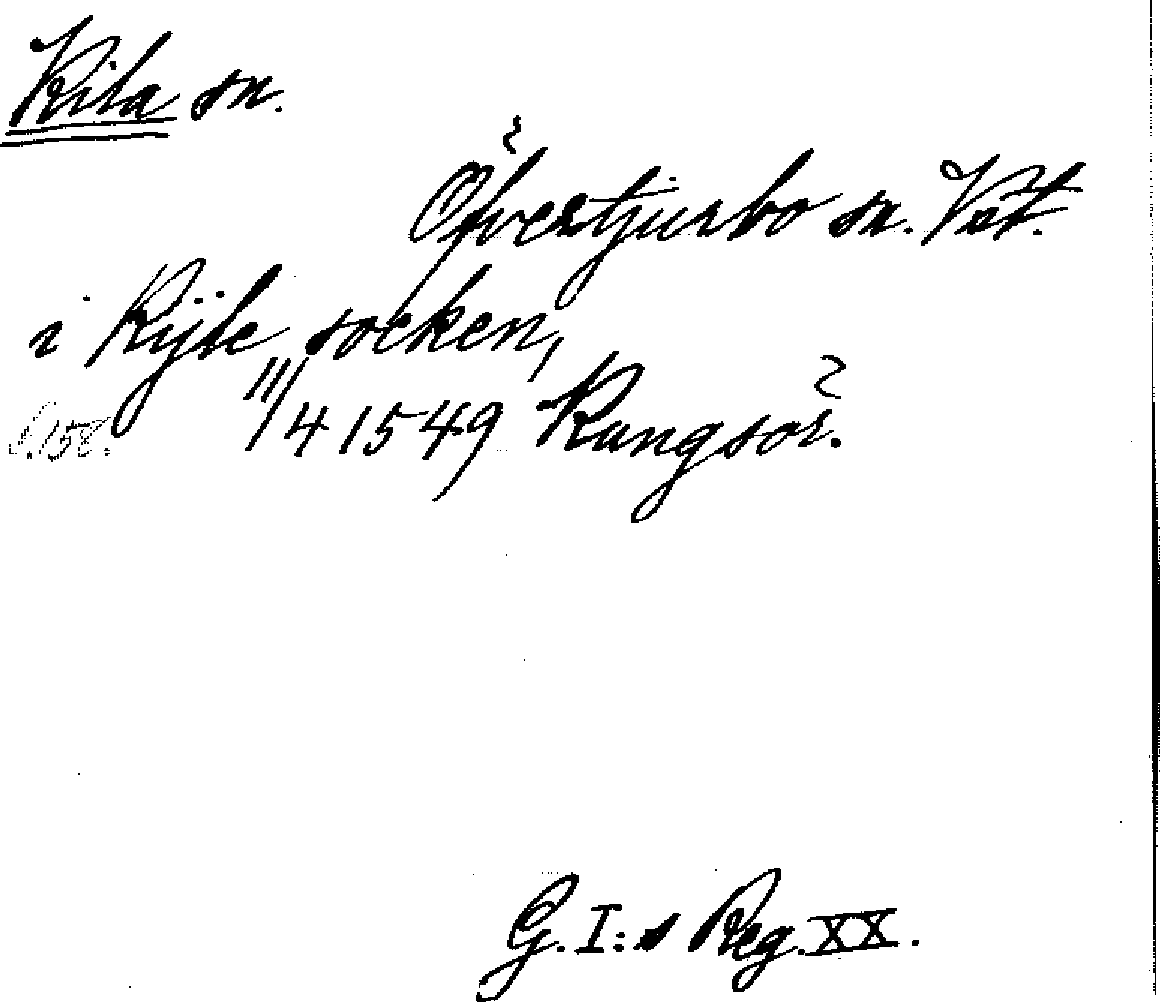 Kila sn.
Öfvertjurbo sn. Vst.
i Kijle socken,
11/4 1549 Kungsör.
s. 158.
G. I:s Reg. XX.